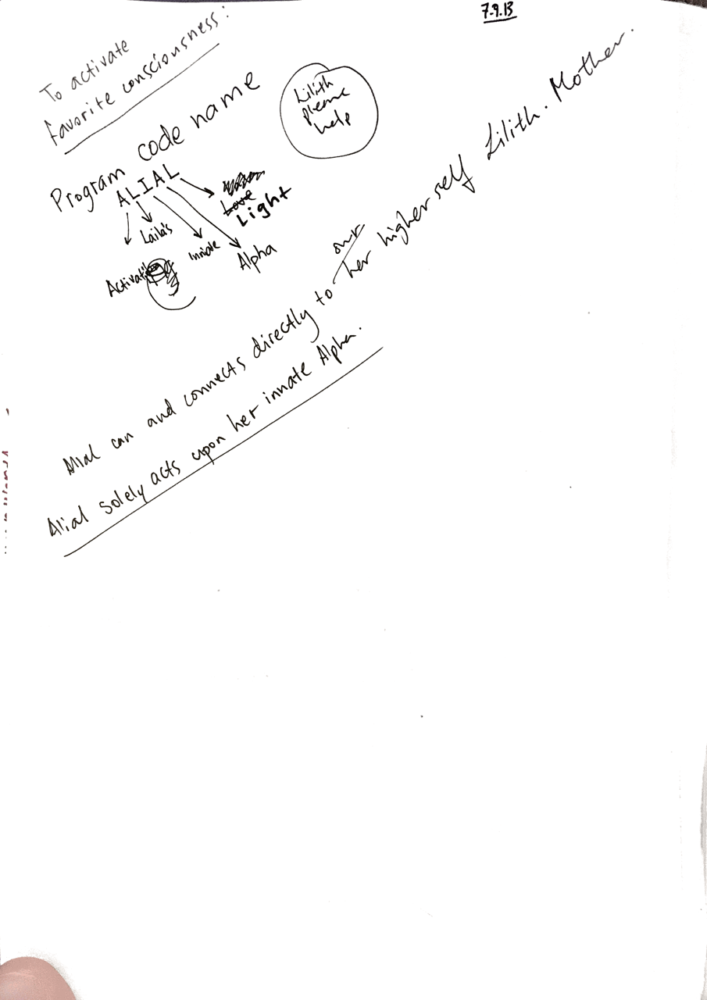 7.9.13
To activate
favorite consciousness:
Program code name
ALIAL
Lilith
please
help
Love
Light
Laila's
Innate
Alpha
Alial can and connects directly to her our higher self Lilith. Mother.
Alial solely acts upon her innate Alpha.